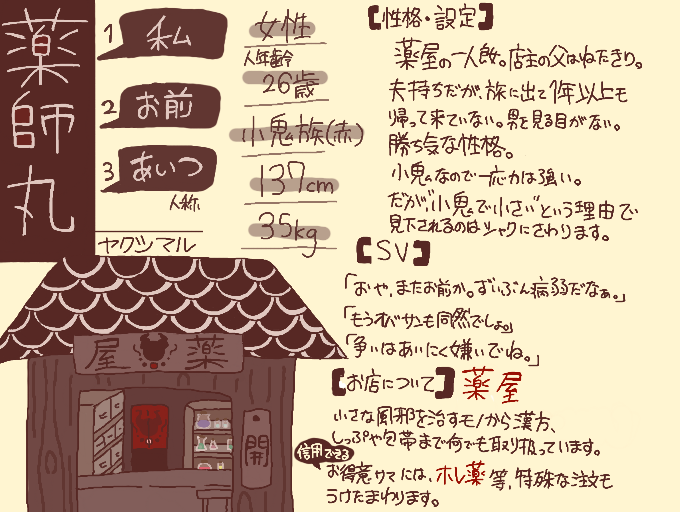 薬師丸
1 私
2 お前
3 あいつ
人称
ヤクシマル
女性
人年齢
26歳
小鬼族(赤)
137cm
35kg
【性格・設定】
薬屋の一人娘。店主の父はねたきり。
夫持ちだが、旅に出て1年以上も
帰って来ていない。男を見る目がない。
勝ち気な性格。
小鬼なので一応力は強い。
だが、"小鬼で小さい"という理由で
見下されるのはシャクにさわります。
【SV】
「おや、またお前か。ずいぶん病弱だなぁ。」
「もうオバサンも同然でしょ。」
「争いはあいにく嫌いでね。」
【お店について】薬屋
小さな風邪を治すモノから漢方、
しっぷや包帯まで何でも取り扱っています。
信用できる
お得意サマには、ホレ薬等、特殊な注文も
うけたまわります。
屋 薬
開